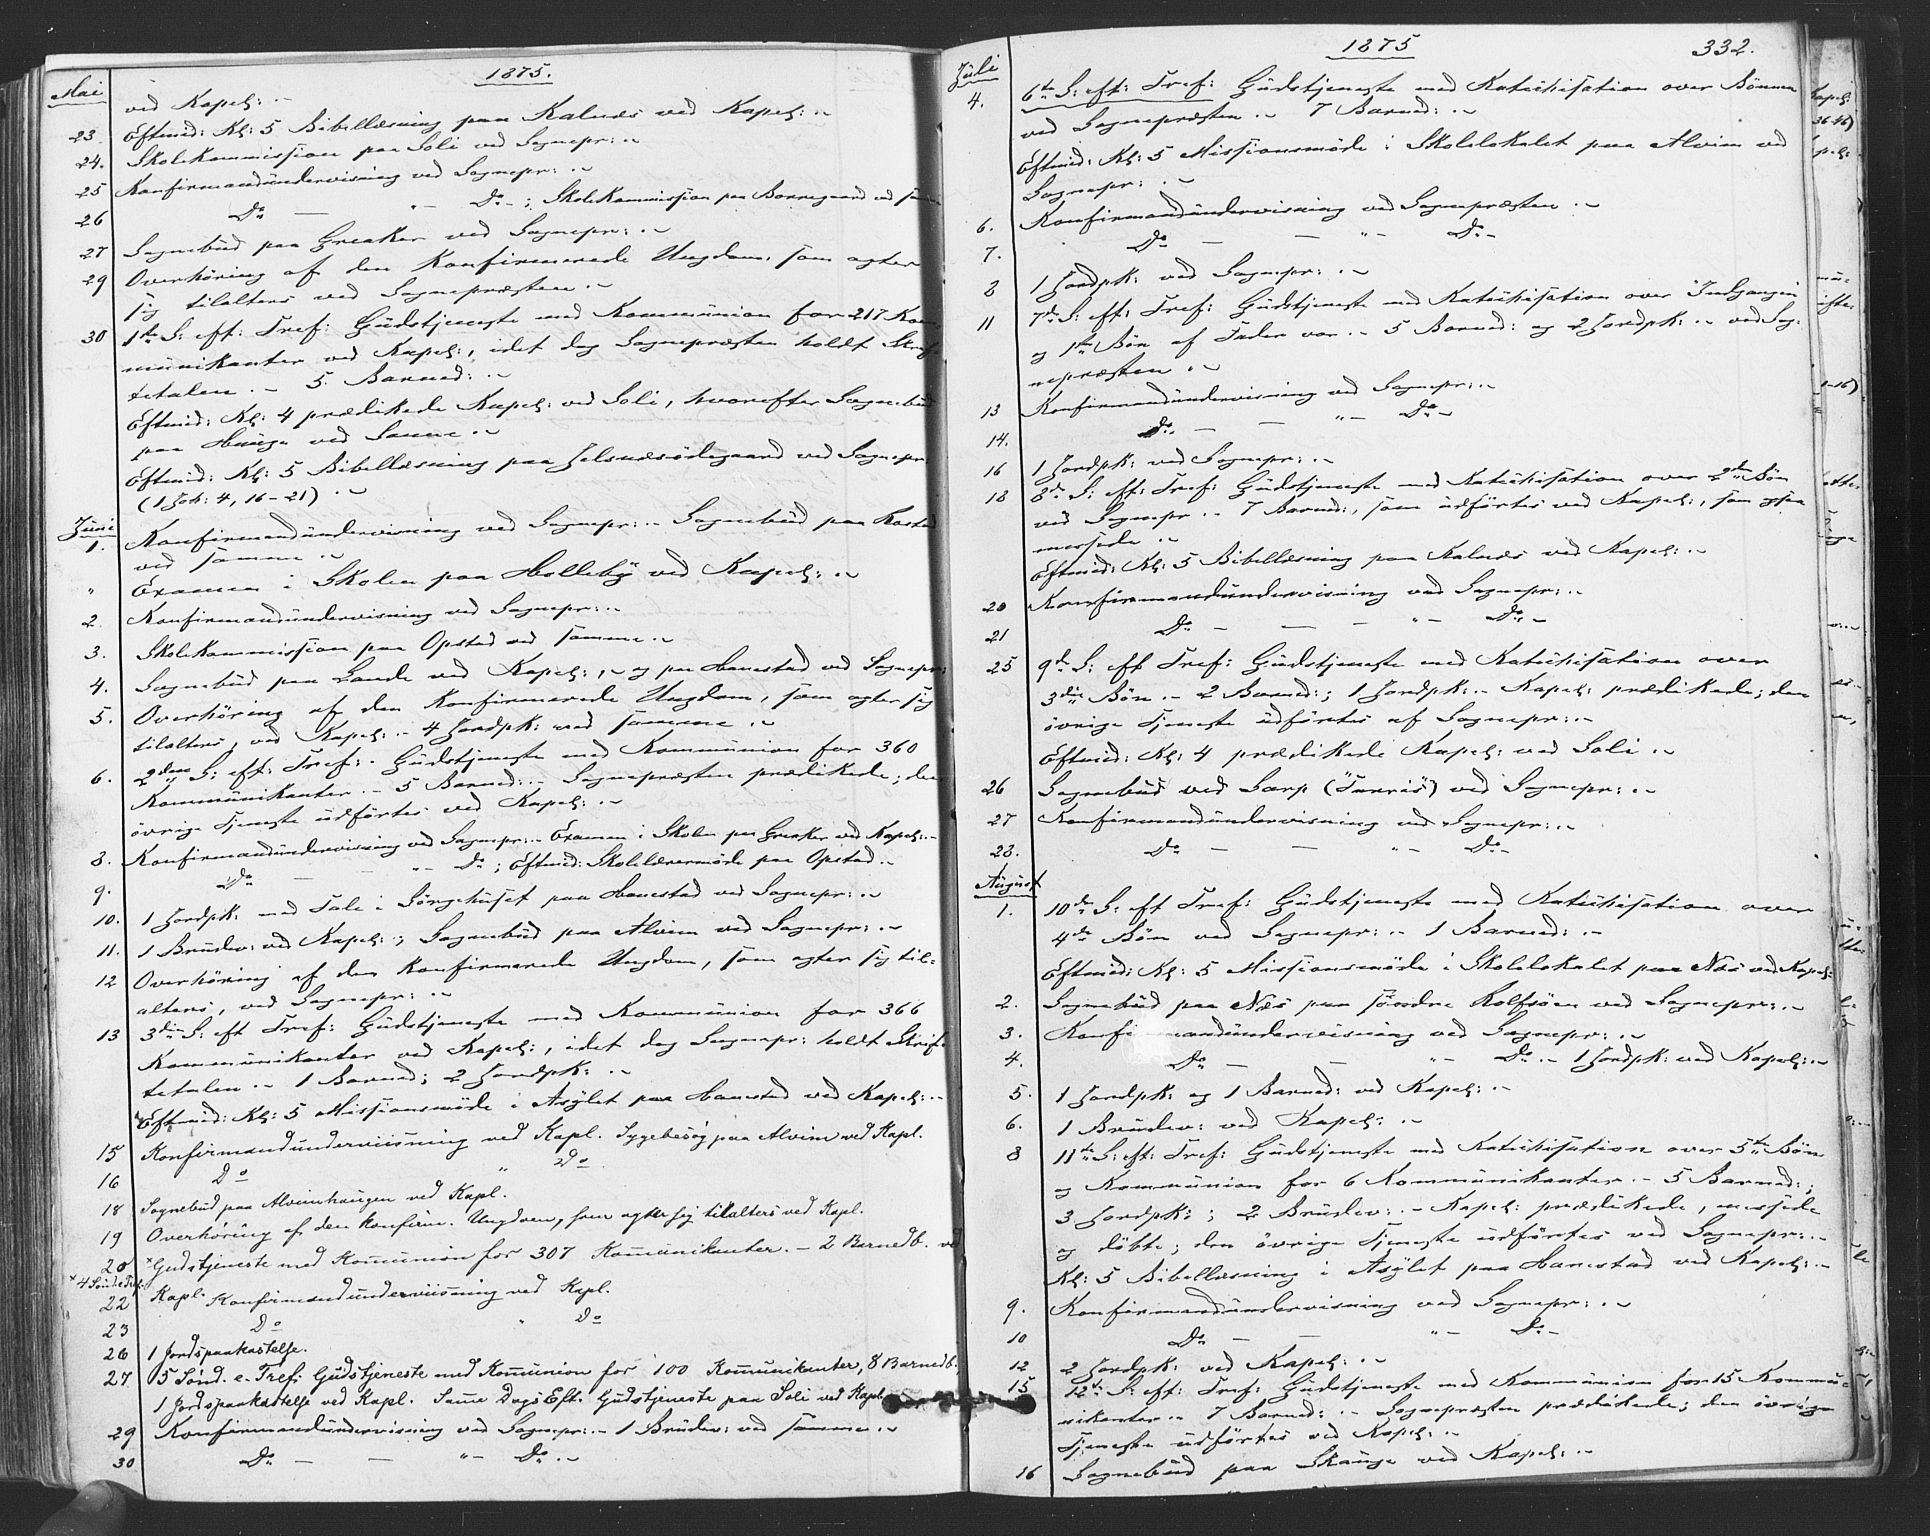 1875.
Mai
ved Kapel: .~
23 Eftmid: Kl: 5 Bibellæsning paa Kalnæs ved Kapel: .~
24. Skolekommission paa Soli ved Sognepr: .~
25 Konfirmandundervisning ved Sognepr: .~
26 Do — „— Do – ; Skolekommission paa Borregaard ved samme
27 Sognebud paa Greaker ved Sognepr: .~
29 Overhöring af den Konfirmerede Ungdom, som agter
sig tilalters ved Sognepræsten .~
30 1ste S: eft: Tref: Gudstjeneste med Kommunion for 217 Kom=
munikanter ved Kapel:, idet dog Sognepræsten holdt Skrif=
tetalen .– 5 Barned: .~
Eftmid: Kl: 4 prædikede Kapel: ved Soli, hvorefter Sognebud
paa Hauge ved Samme .~
Eftmid: Kl: 5 Bibellæsning paa Jelsnæsödegaard ved Sognepr:
(1 Joh: 4, 16–21) .~
Juni
1. Konfirmandundervisning ved Sognepr: .– Sognebud paa
ved samme .~
„ Examen i Skolen paa Holleby ved Kapel: .~
2. Konfirmandundervisning ved Sognepr: .~
3. Skolekommission paa Opstad ved samme .~
4. Sognebud paa Lande ved Kapel:, og paa Hanestad ved Sognepr:
5. Overhöring af den Konfirmerede Ungdom, som agter sig
tilalters, ved Kapel: .– 4 Jordpk: ved samme .~
6. 2den S: eft: Tref: . Gudstjeneste med Kommunion for 360
Kommunikanter .– 5 Barned: .– Sognepræsten prædikede; den
övrige Tjeneste udförtes ved Kapel: .~
8. Konfirmandundervisning ved Sognepr: .– Examen i Skolen paa Greaker ved Kapel: .–
9. Do — — „— Do ; Eftmid: Skolelærermöde paa Opstad .~
10. 1 Jordpk: med Tale i Sörgehuset paa Hanestad ved Sognepr: .~
11. 1 Brudev: ved Kapel: ; Sognebud paa Alvim ved Sognepr: .~
12 Overhöring af den Konfirmerede Ungdom, som agter sig til=
alters, ved Sognepr: .~
13 3die S: eft Tref: Gudstjeneste med Kommunion for 366
Kommunikanter ved Kapel:, idet dog Sognepr: holdt Skrif=
tetalen .– 1 Barned; 2 Jordpk: .~
Eftmid: Kl: 5 Missionsmöde i Asylet paa Hanestad ved Kapel: .–
15 Konfirmandunderviisning ved Kapl. Sygebesög paa Alvim ved Kapl.
16 Do „ Do
18 Sognebud paa Alvimhaugen ved Kapl.
19 Overhøring af den konfirm. Ungdom, som agter sig tilalters ved Kapl.
20 × Gudstjeneste med Kommunion for 307 Kommunikanter. – 2 Barnedb. ved
× 4 Sønd. e Tref.
Kapl.
22 Konfirmandunderviisning ved Kapl.
23 Do „ Do
26 1 Jordspaakastelse.
27 5 Sønd. e. Tref: Gudstjeneste med Kommunion for 100 Kommunikanter, 8 Barnedb.,
1 Jordspaakastelse ved Kapl. Samme Dags Eft. Gudstjeneste paa Soli ved Kapl.
29 Konfirmandundervisning ved Sognepr: .– 1 Brudev: ved samme .~
30 Do — — „— Do .~
1875 332.
Juli
4. 6te S: eft: Tref: Gudstjeneste med Katekisation over Bönnen
ved Sognepræsten .~ 7 Barned: .~
Eftmid: Kl: 5 Missionsmöde i Skolelokalet paa Alvim ved
Sognepr: .~
6. Konfirmandundervisning ved Sognepræsten .~
7. Do — — „— Do –
8 1 Jordpk: ved Sognepr: .~
11 7de S: eft: Tref: Gudstjeneste med Katekisation over Indgangen
og 1ste Bön af Fader vor .– 5 Barned: og 2 Jordpk: .~ ved Sog=
nepræsten .~
13 Konfirmandundervisning ved Sognepr: .~
14. Do — — „— Do ~
16 1 Jordpk: ved Sognepr: .~
18 8de S: eft: Tref: Gudstjeneste med Katekisation over 2den Bön
ved Sognepr .– 7 Barned:, som udförtes ved Kapel:, som ogsaa
messede .~
Eftmid: Kl: 5 Bibellæsning paa Kalnæs ved Kapel: .~
20 Konfirmandundervisning ved Sognepr: .~
21 Do — — — „— Do .~
25 9de S: eft Tref: Gudstjeneste med Katekisation over
3die Bön .– 2 Barned: ; 1 Jordpk: .– Kapel: prædikede; den
övrige Tjeneste udförtes af Sognepr: .~
Eftmid: Kl: 4 prædikede Kapel: ved Soli .~
26 Sognebud ved Sarp ("Tarris") ved Sognepr: .~
27 Konfirmandundervisning ved Sognepr: .~
28. Do — — „— Do –
August
1. 10de S: eft Tref: Gudstjeneste med Katekisation over
4de Bön ved Sognepr: .– 1 Barned: .~
Eftmid: Kl: 5 Missionsmöde i Skolelokalet paa Næs ved Kapel:
2. Sognebud paa Næs paa söndre Rolfsöen ved Sognepr: .~
3. Konfirmandundervisning ved Sognepr: .~
4. Do — — „— Do .– 1 Jordpk: ved Kapel: .~
5. 1 Jordpk: og 1 Barned: ved Kapel: .~
6. 1 Brudev: ved Kapel: .~
8 11te S: eft: Tref: Gudstjeneste med Katekisation over 5te Bön
og Kommunion for 6 Kommunikanter .– 5 Barned: ;
3 Jordpk: ; 2 Brudev: .– Kapel: prædikede, messede
og döbte; den övrige Tjeneste udförtes ved Sognepr: .–
Kl: 5 Bibellæsning i Asylet paa Hanestad ved Kapel: .–
9. Konfirmandundervisning ved Sognepr: .~
10 Do — — „— Do –
12 2 Jordpk: ved Kapel: .~
15 12te S: eft: Tref: Gudstjeneste med Kommunion for 15 Kommu=
nikanter .~ 7 Barned: .– Sognepræsten prædikede; den övrige
Tjeneste udförtes ved Kapel: .~
16 Sognebud paa Skauge ved Kapel: .~